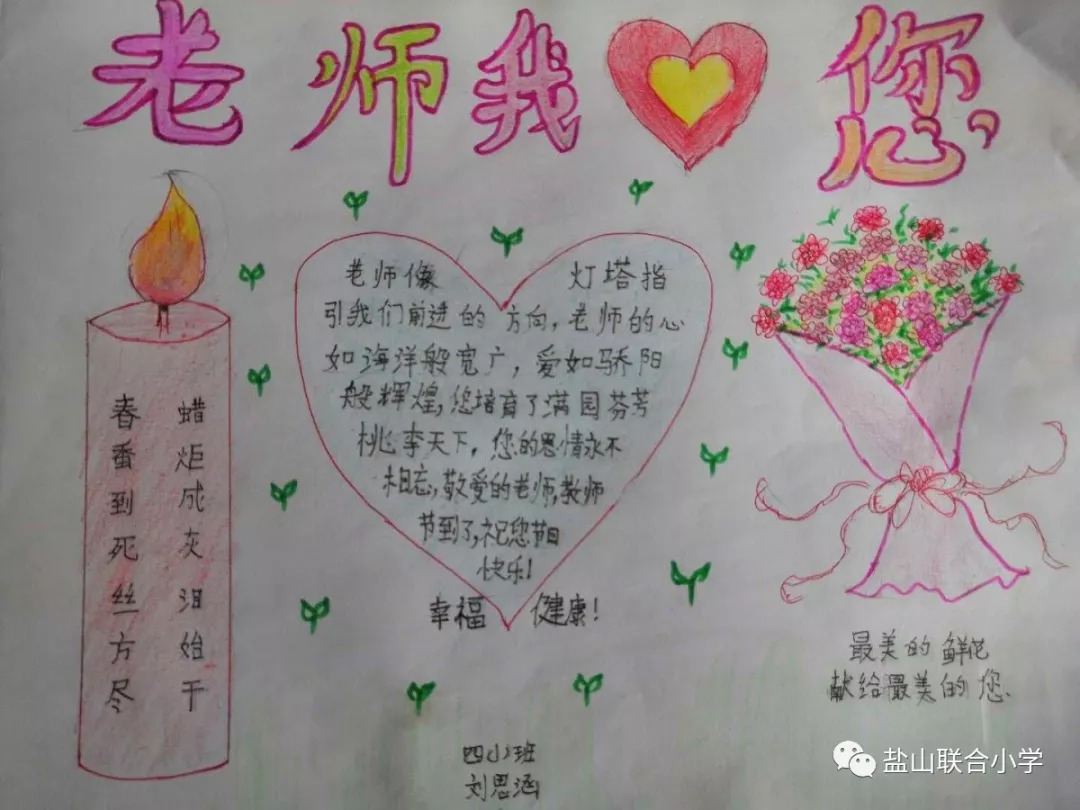 老师我您,
老师像 灯塔指
引我们前进的方向,老师的心
如海洋般宽广,爱如骄阳
般辉煌,您培育了满园芬芳
桃李天下,您的恩情永不
相忘,敬爱的老师,教师
节到了,祝您节日
快乐!
幸福 健康!
春蚕到死丝方尽
蜡炬成灰泪始干
最美的鲜花
献给最美的您.
四(1)班
刘思涵
盐山联合小学